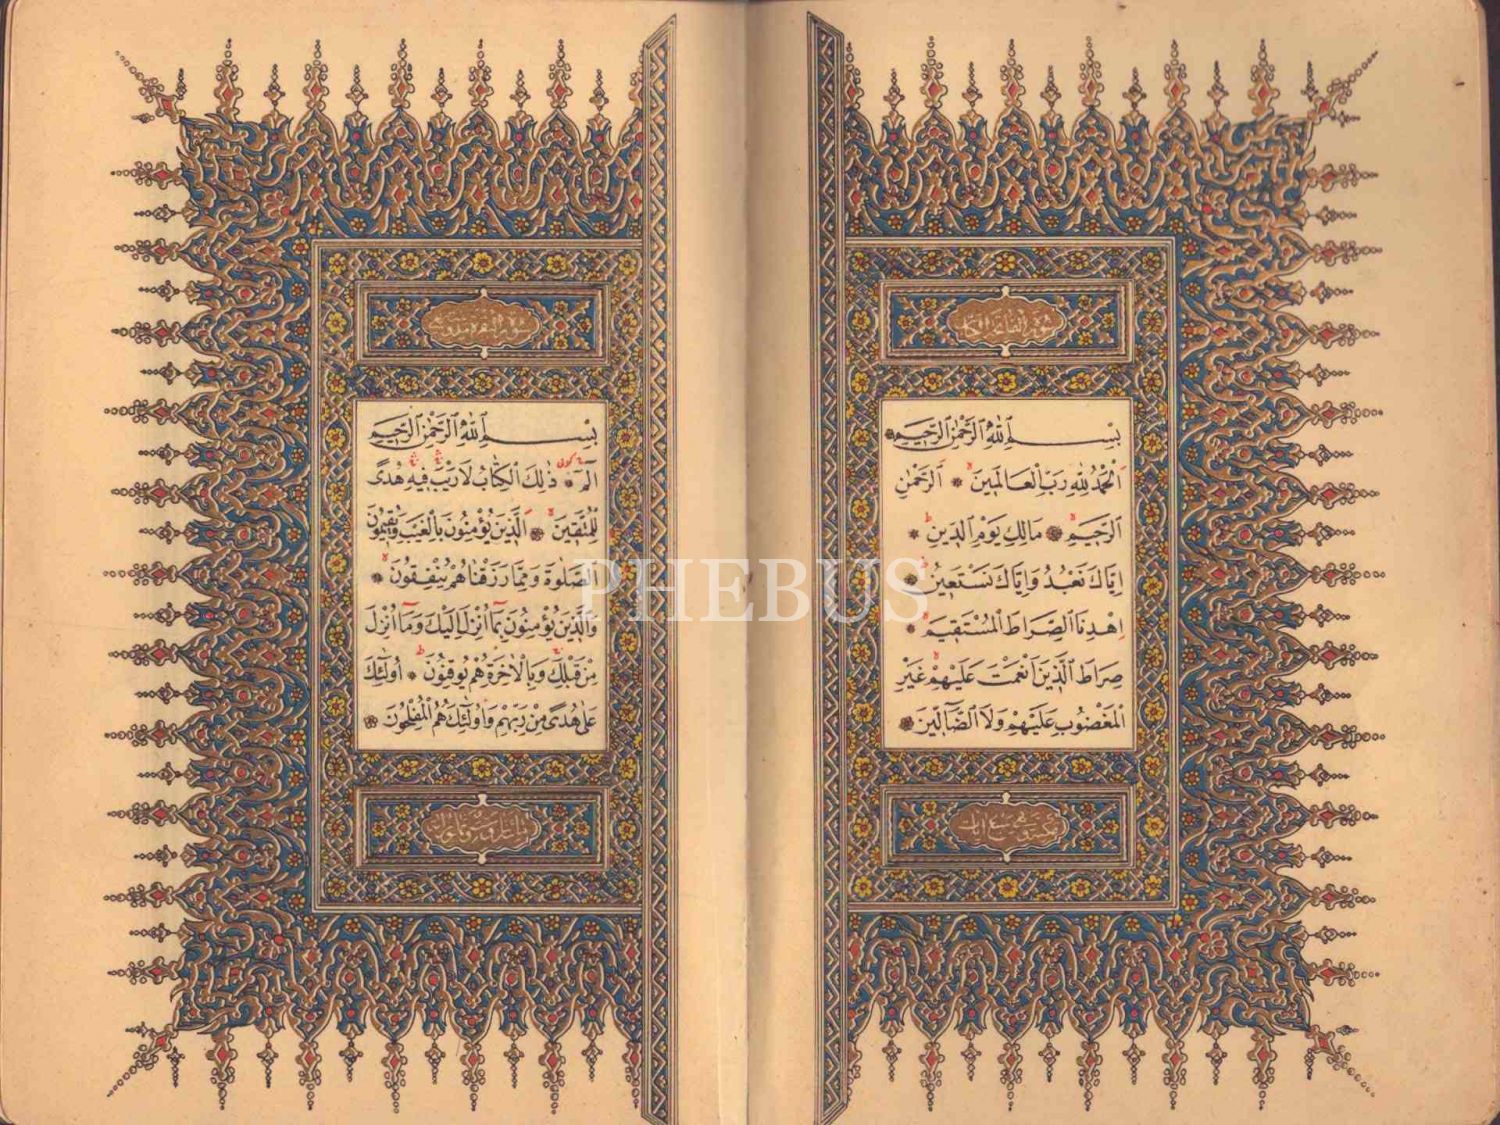 سورة الفاتحة الكتاب
بِسْمِ اللّٰهِ الرَّحْمٰنِ الرَّحِيمِ
اَلْحَمْدُ لِلّٰهِ رَبِّ الْعَالَمِينَ اَلرَّحْمٰنِ
الرَّحِيمِ مَالِكِ يَوْمِ الدِّينِ
اِيَّاكَ نَعْبُدُ وَاِيَّاكَ نَسْتَعِينُ
اِهْدِنَا الصِّرَاطَ الْمُسْتَقِيمَ
صِرَاطَ الَّذِينَ اَنْعَمْتَ عَلَيْهِمْ غَيْرِ
الْمَغْضُوبِ عَلَيْهِمْ وَلَا الضَّآلِّينَ
وهي سبع ايات
سورة البقرة مدنية
بِسْمِ اللّٰهِ الرَّحْمٰنِ الرَّحِيمِ
الٓمٓ ذٰلِكَ الْكِتَابُ لَا رَيْبَ فِيهِ هُدًى
لِلْمُتَّقِينَ اَلَّذِينَ يُؤْمِنُونَ بِالْغَيْبِ وَيُقِيمُونَ
الصَّلٰوةَ وَمِمَّا رَزَقْنَاهُمْ يُنْفِقُونَ
وَالَّذِينَ يُؤْمِنُونَ بِمَآ اُنْزِلَ اِلَيْكَ وَمَآ اُنْزِلَ
مِنْ قَبْلِكَ وَبِالْاٰخِرَةِ هُمْ يُوقِنُونَ اُولٰٓئِكَ
عَلٰى هُدًى مِنْ رَبِّهِمْ وَاُولٰٓئِكَ هُمُ الْمُفْلِحُونَ
PHEBUS